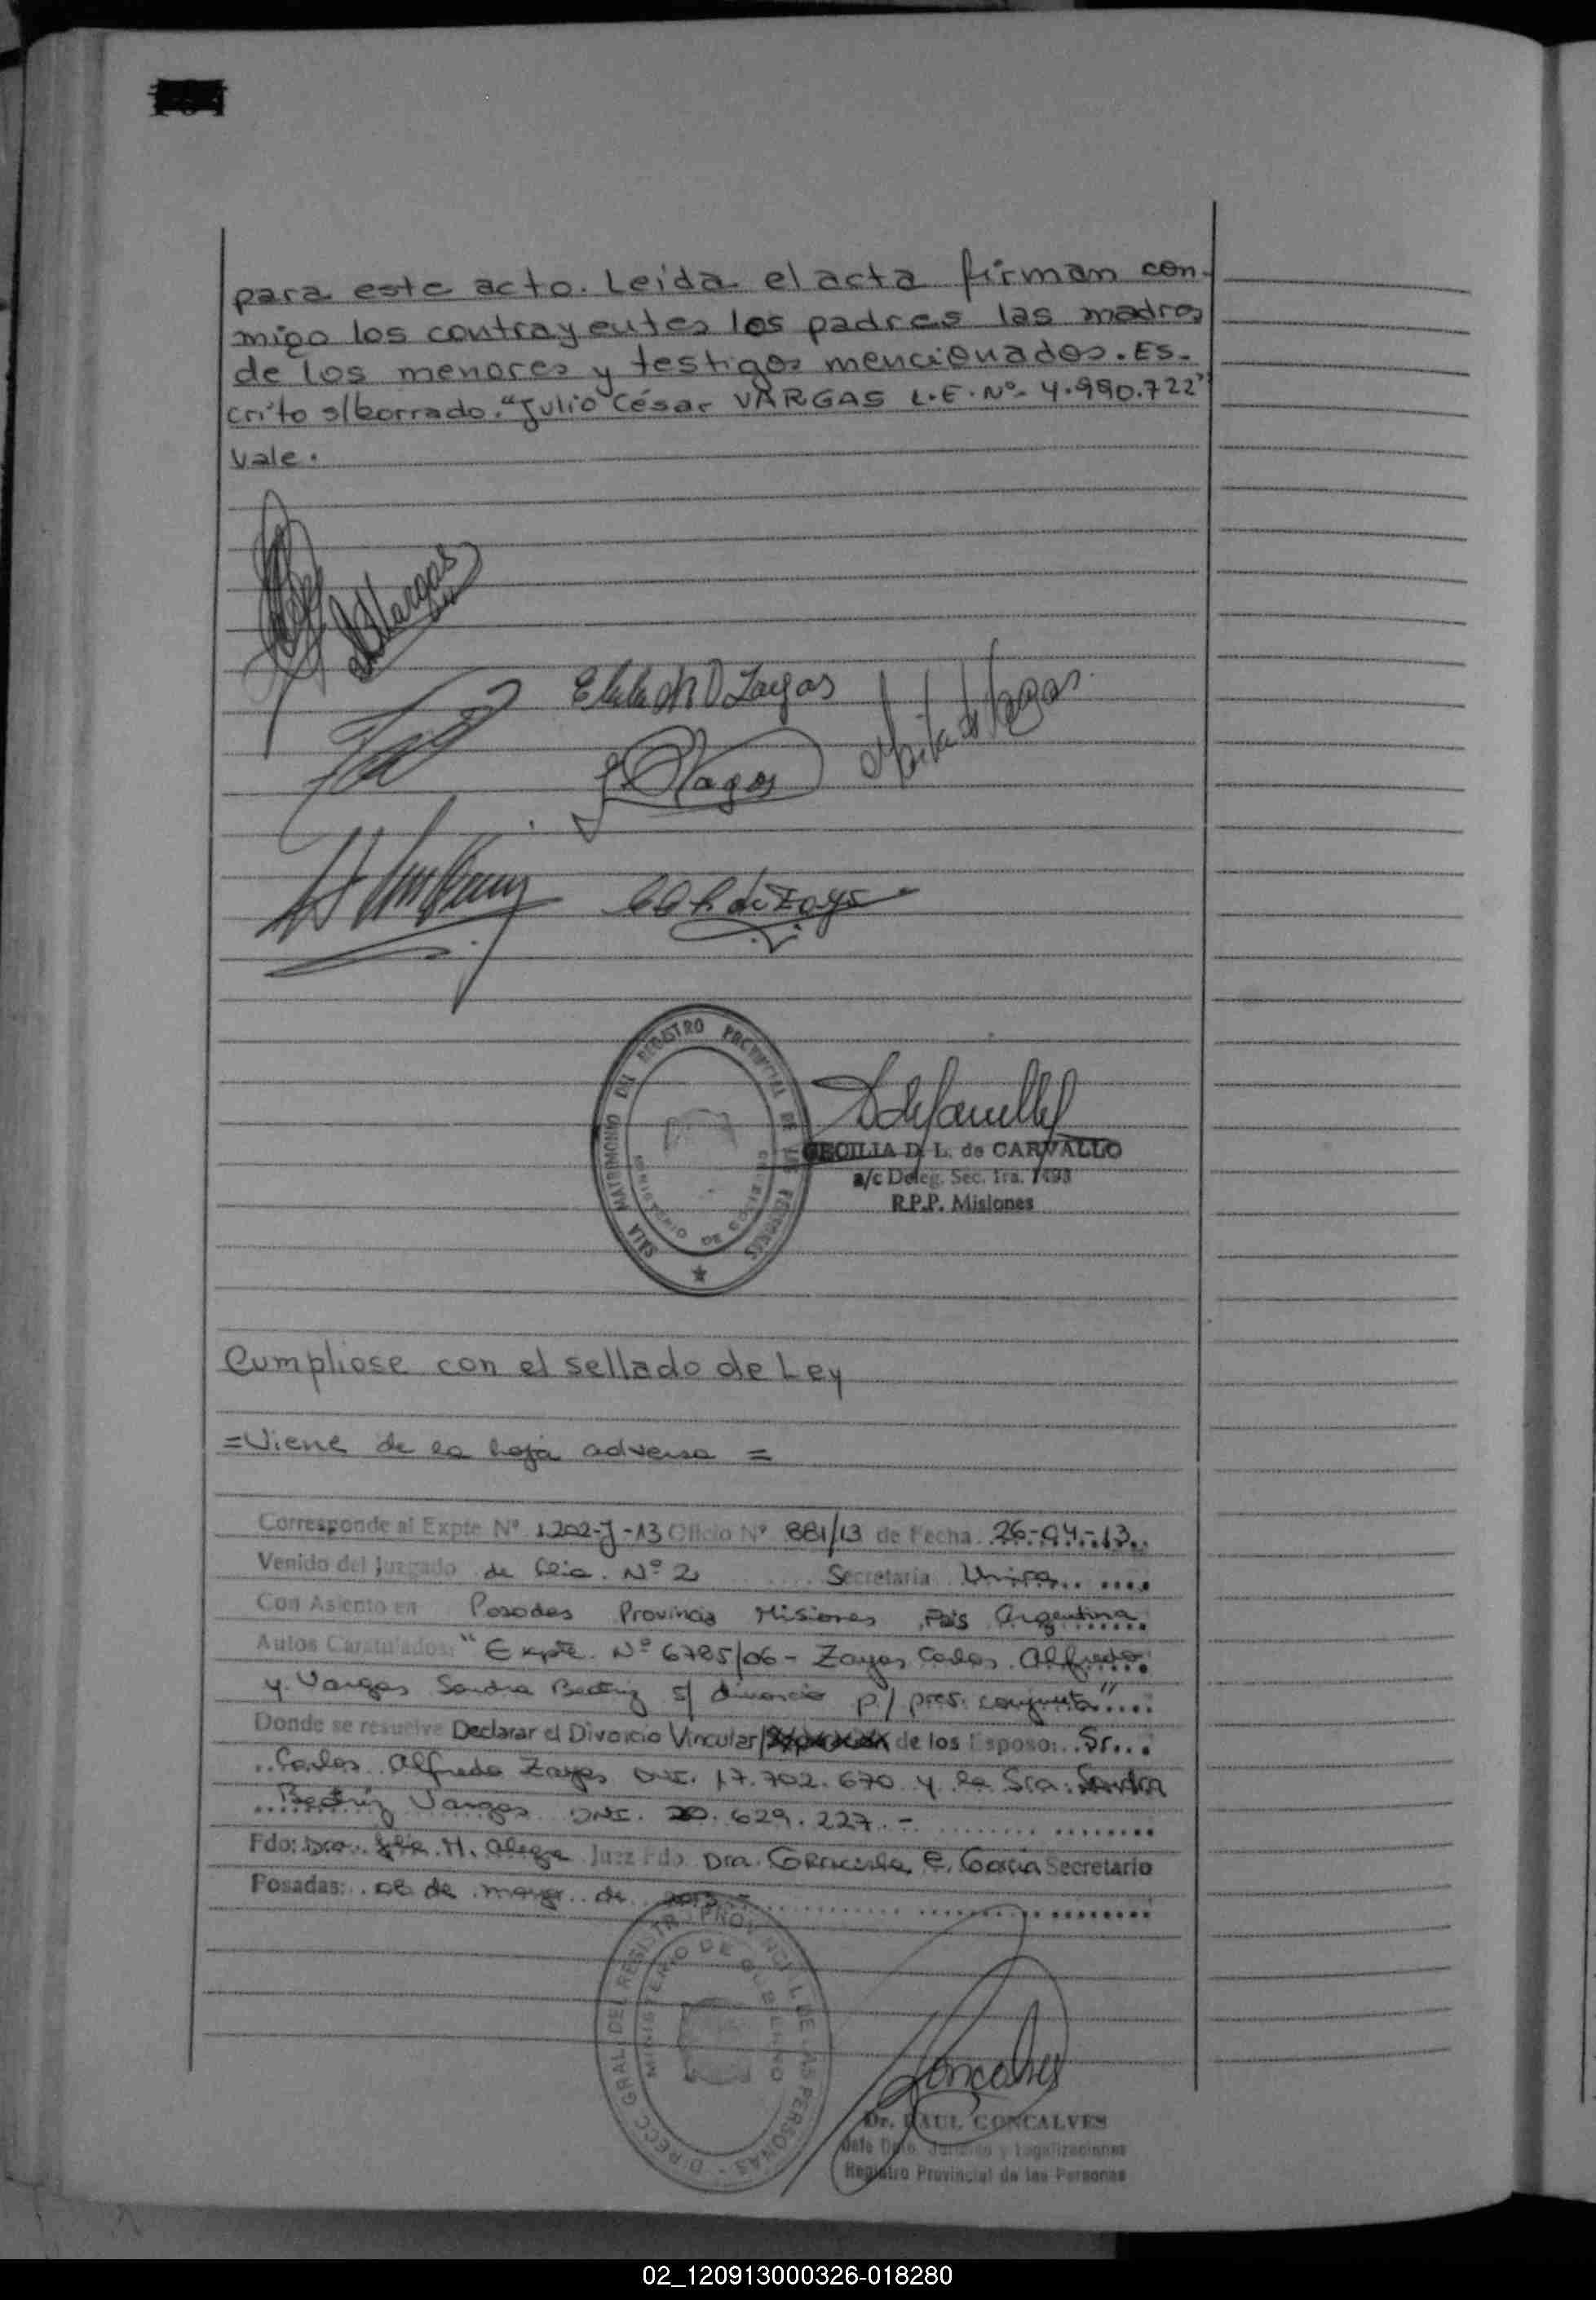 para este acto. Leida el acta firman con-
migo los contrayentes los padres las madres
de los menores y testigos mencionados. Es-
crito s/borrado. "Julio César VARGAS L.E. Nº- 4.990.722"
vale.
Vargas
de Vargas
Vargas
de Zayas
SALA MATRIMONIO DEL REGISTRO PROVINCIAL DE LAS PERSONAS
MINISTERIO DE GOBIERNO
CECILIA D. L. de CARVALLO
a/c Deleg. Sec. 1ra. 1493
R.P.P. Misiones
Cumpliose con el sellado de Ley
=Viene de la hoja adversa =
Corresponde al Expte Nº 1202-J-13 Oficio Nº 881/13 de Fecha 26-04-13
Venido del Juzgado de Flia. Nº 2 Secretaria Unica
Con Asiento en Posadas Provincia Misiones Pais Argentina
Autos Caratulados: "Expte. Nº 6785/06 - Zayas Carlos Alfredo
y Vargas Sandra Beatriz s/ divorcio p/ pres. conjunta"
Donde se resuelve Declarar el Divorcio Vincular/ de los Esposo: Sr.
Carlos Alfredo Zayas DNI. 17.702.670 y la Sra. Sandra
Beatriz Vargas DNI. 20.629.227.-
Fdo: Dra. M. Juez Fdo Dra. Graciela Garcia Secretario
Posadas: 08 de mayo de 2013.-
DIRECC. GRAL. DEL REGISTRO PROVINCIAL DE LAS PERSONAS
MINISTERIO DE GOBIERNO
Goncalves
Dr. RAUL GONCALVES
Jefe Dpto. Juridico y Legalizaciones
Registro Provincial de las Personas
02_120913000326-018280